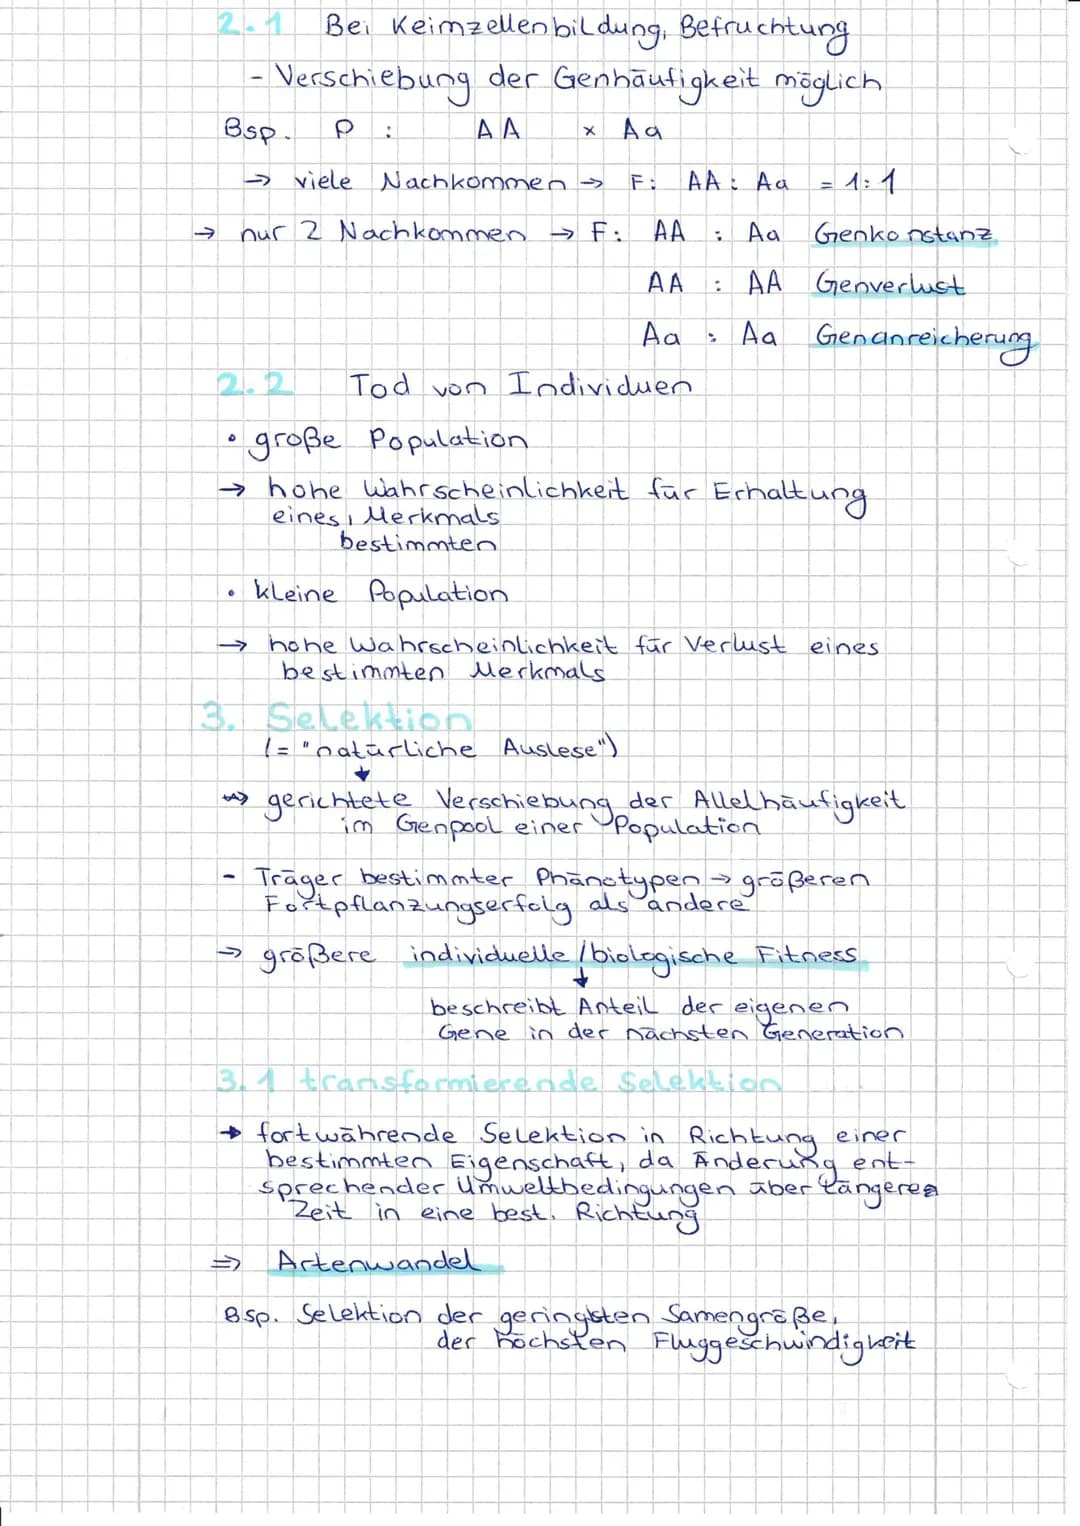 2.1 Bei Keimzellenbildung, Befruchtung
- Verschiebung der Genhäufigkeit möglich
Bsp. P : AA x Aa
→ viele Nachkommen → F: AA : Aa = 1:1
→ nur 2 Nachkommen → F: AA : Aa Genkonstanz
AA : AA Genverlust
Aa : Aa Genanreicherung
2.2 Tod von Individuen
• große Population
→ hohe Wahrscheinlichkeit für Erhaltung
eines, Merkmals
bestimmten
• kleine Population
→ hohe Wahrscheinlichkeit für Verlust eines
bestimmten Merkmals
3. Selektion
(= "natürliche Auslese")
↓
→ gerichtete Verschiebung der Allelhäufigkeit
im Genpool einer Population
- Träger bestimmter Phänotypen → größeren
Fortpflanzungserfolg als andere
→ größere individuelle / biologische Fitness
↓
beschreibt Anteil der eigenen
Gene in der nächsten Generation
3.1 transformierende Selektion
→ fortwährende Selektion in Richtung einer
bestimmten Eigenschaft, da Änderung ent-
sprechender Umweltbedingungen über längere
Zeit in eine best. Richtung
⇒ Artenwandel
Bsp. Selektion der geringsten Samengröße,
der höchsten Fluggeschwindigkeit